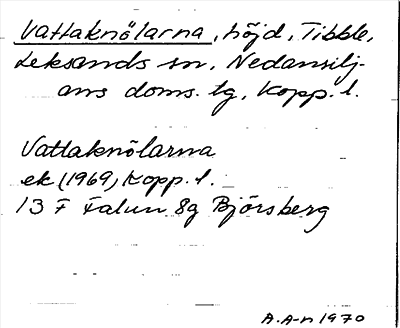 Vattaknölarna, höjd, Tibble,
Leksands sn, Nedansilj-
ans doms. lg, Kopp. l.
Vattaknölarna
ek (1969) Kopp. l.
13 F Falun 8g Björsberg
A.A-n 1970